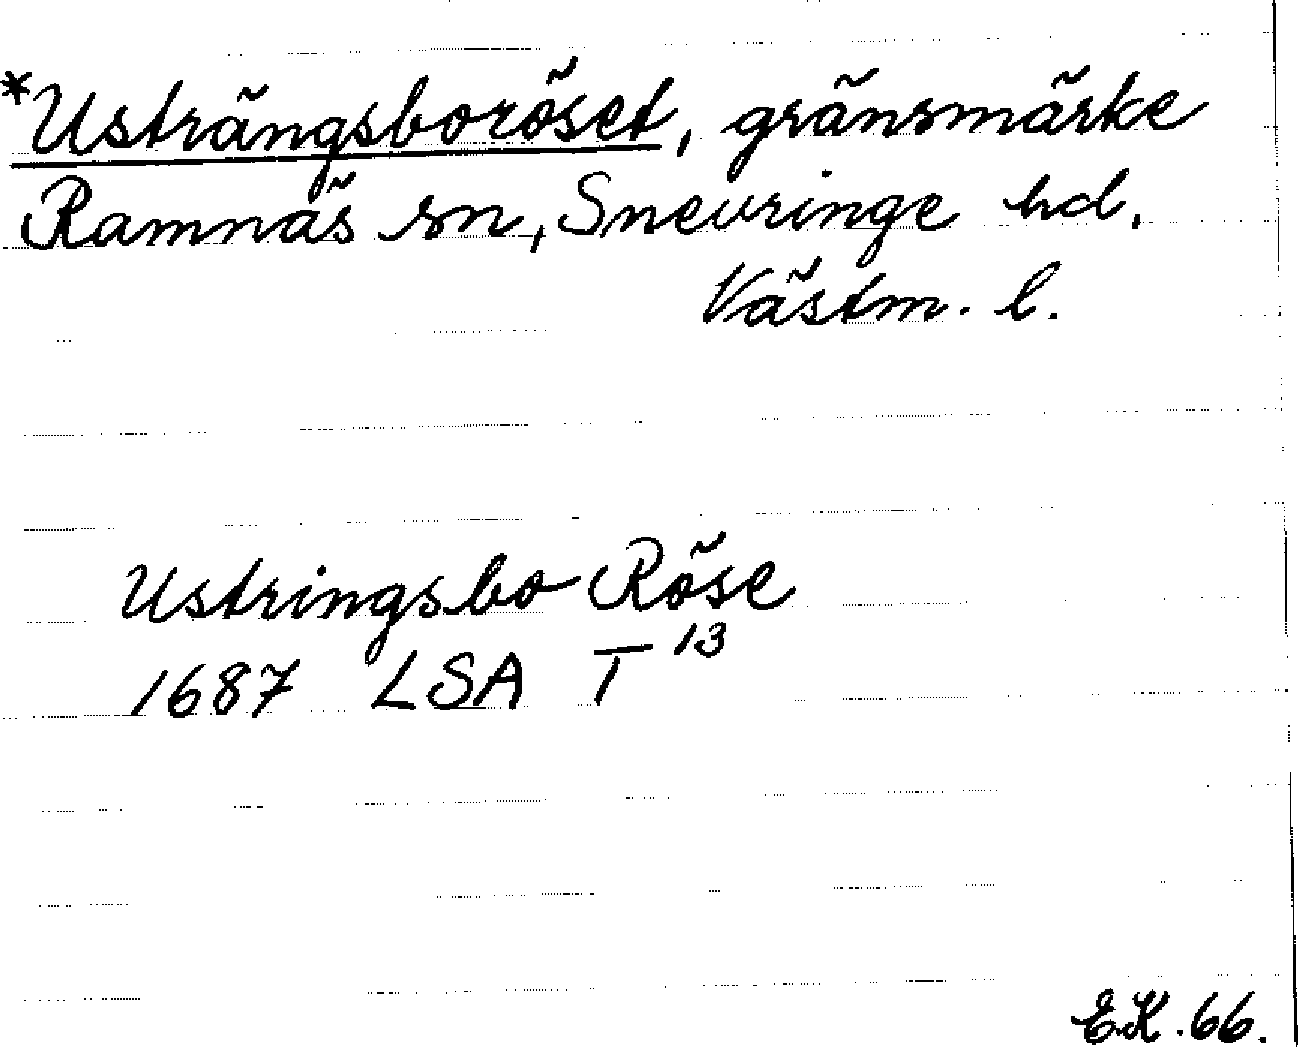 *Usträngsboröset, gränsmärke
Ramnäs sn, Snevringe hd.
Västm. l.
Ustringsbo Röse
1687 LSA T 13
E.K. 66.